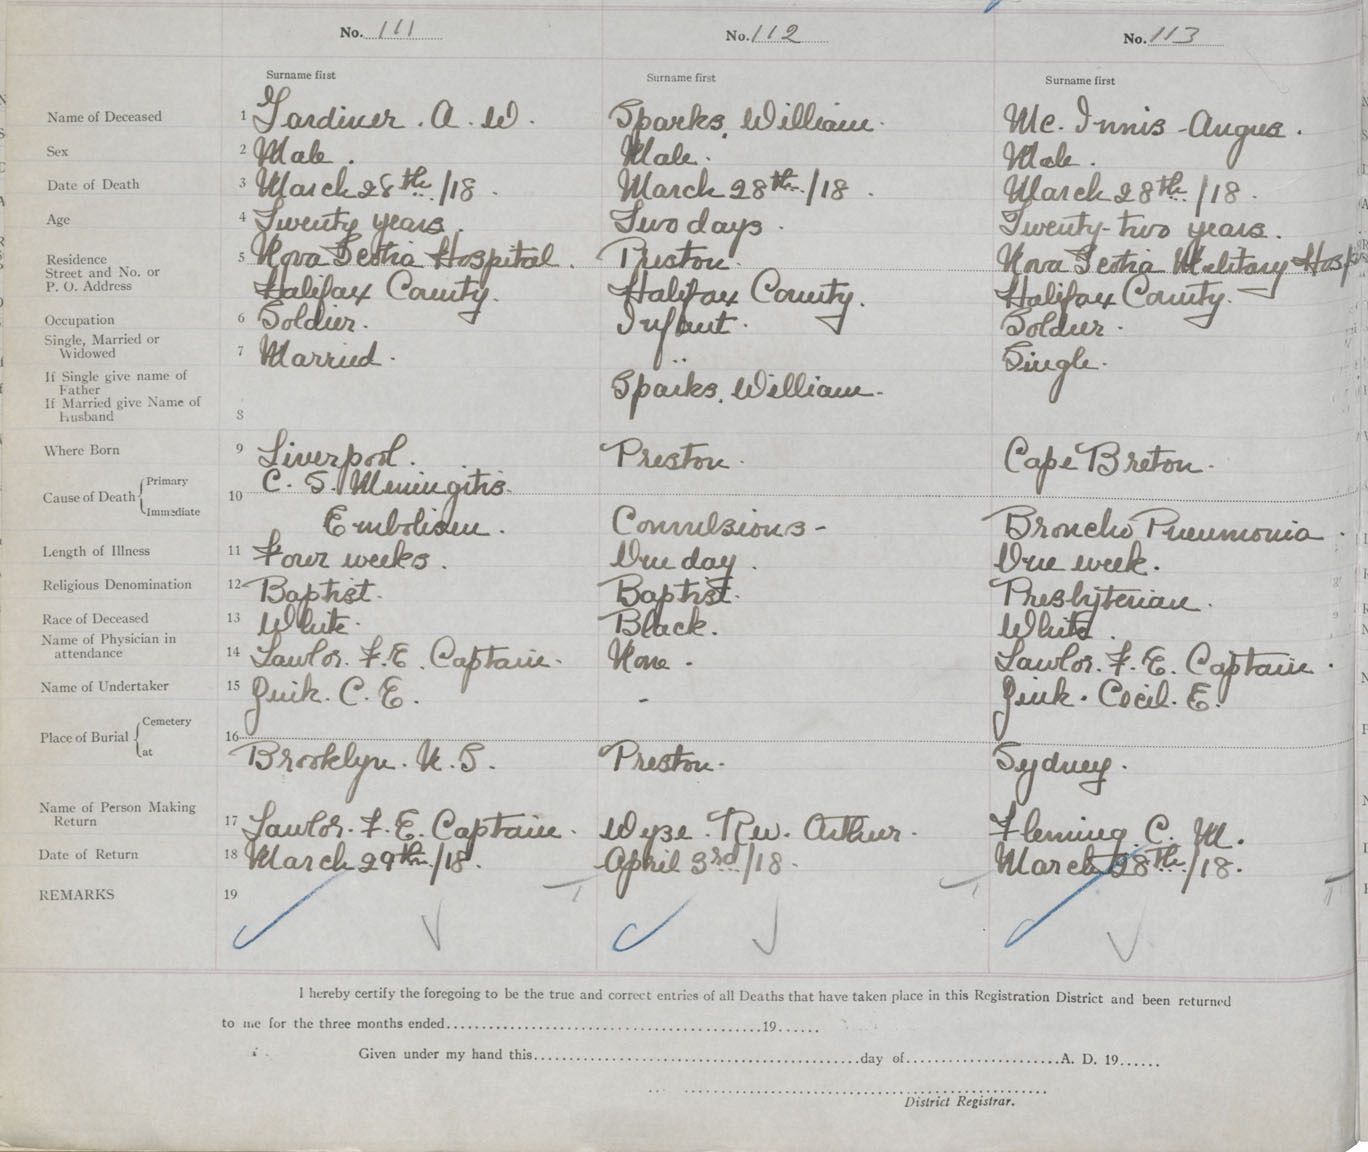 No. 111 No. 112 No. 113
Surname first Surname first Surname first
Name of Deceased 1 Gardiner. A. W. Sparks, William. Mc. Innis - Angus.
Sex 2 Male. Male. Male.
Date of Death 3 March 28th/18. March 28th/18. March 28th/18.
Age 4 Twenty years. Two days. Twenty-two years.
Residence 5 Nova Scotia Hospital. Preston. Nova Scotia Military Hosp
Street and No. or
P. O. Address Halifax County. Halifax County. Halifax County.
Occupation 6 Soldier. Infant. Soldier.
Single, Married or
Widowed 7 Married. " Single.
If Single give name of
Father Sparks, William.
If Married give Name of
Husband 8
Where Born 9 Liverpool. Preston. Cape Breton.
Cause of Death Primary 10 C. S. Meningitis.
Immediate Embolism. Convulsions - Broncho Pneumonia.
Length of Illness 11 Four weeks. One day. One week.
Religious Denomination 12 Baptist. Baptist. Presbyterian.
Race of Deceased 13 White. Black. White.
Name of Physician in
attendance 14 Lawlor. F. E. Captain. None. Lawlor. F. E. Captain.
Name of Undertaker 15 Zink. C. E. - Zink. Cecil. E.
Place of Burial Cemetery 16
at Brooklyn. N. S. Preston. Sydney.
Name of Person Making
Return 17 Lawlor. F. E. Captain. Wyse. Rev. Arthur. Fleming. C. M.
Date of Return 18 March 29th/18. April 3rd/18. March 28th/18.
REMARKS 19
I hereby certify the foregoing to be the true and correct entries of all Deaths that have taken place in this Registration District and been returned
to me for the three months ended 19
Given under my hand this day of A. D. 19
District Registrar.